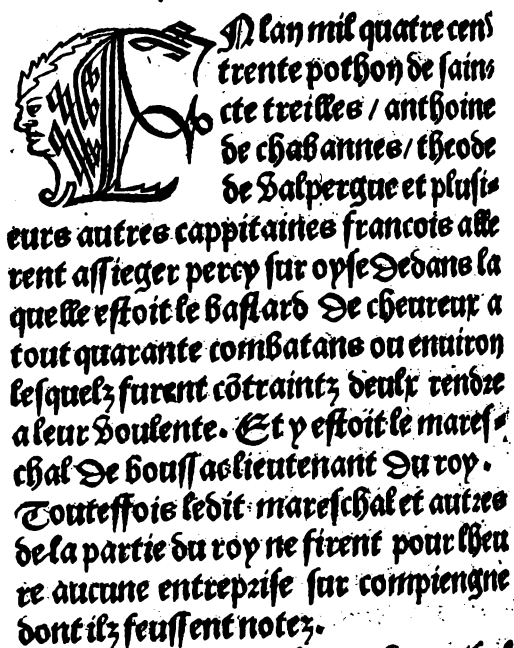 EN lan mil quatre cens
trente pothon de sain⸗
cte treilles / anthoine
de chabannes / theode
de Valpergue et plusi⸗
eurs autres cappitaines francois alle
rent assieger percy sur oyse Dedans la
quelle estoit le bastard De cheureux a
tout quarante combatans ou enuiron
lesquelz furent cōtraintz deulx rendre
a leur Voulente. Et y estoit le mares⸗
chal De boussac lieutenant Du roy.
Touteffois ledit mareschal et autres
de la partie du roy ne firent pour lheu
re aucune entreprise sur compiengne
dont ilz feussent notez.